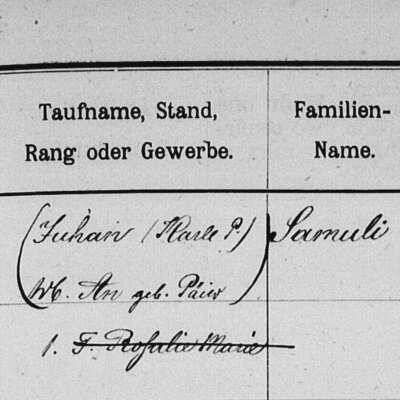 Taufname, Stand,
Rang oder Gewerbe.
Familien-
Name.
(Juhan (Karle P.) Samuli
Wb. An geb. Päiw)
1. T. Rosalie Marie